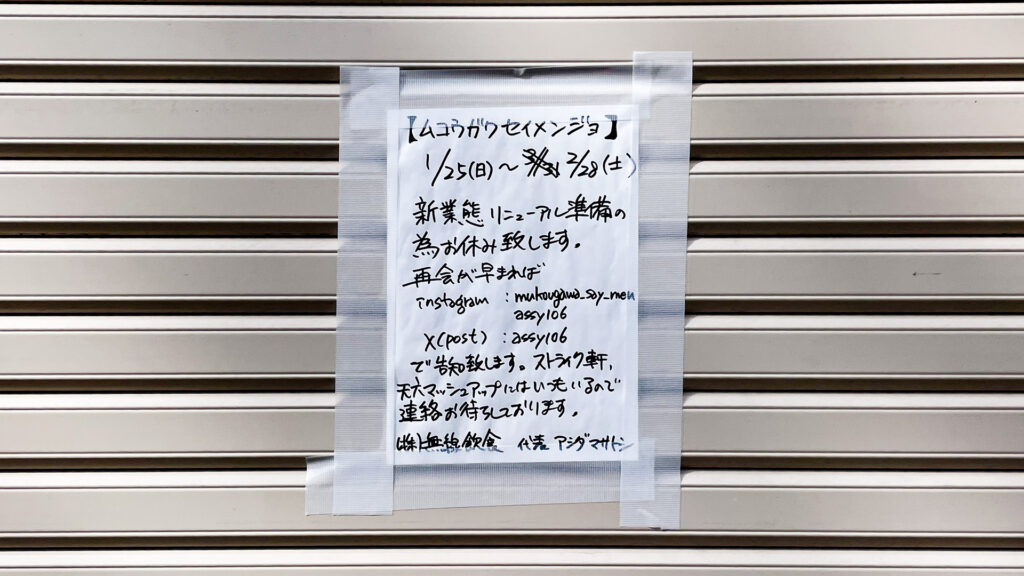 【ムコウガワセイメンジョ】
1/25(日)～ 2/28(土)
新業態リニューアル準備の
為お休み致します。
再会が早まれば
instagram : mukougawa_say_men
assy106
X(post) : assy106
で告知致します。ストライク軒,
天六マッシュアップにはいつもいるので
連絡お待ちしております。
(株)無線飲食 代表 アシダマサトシ